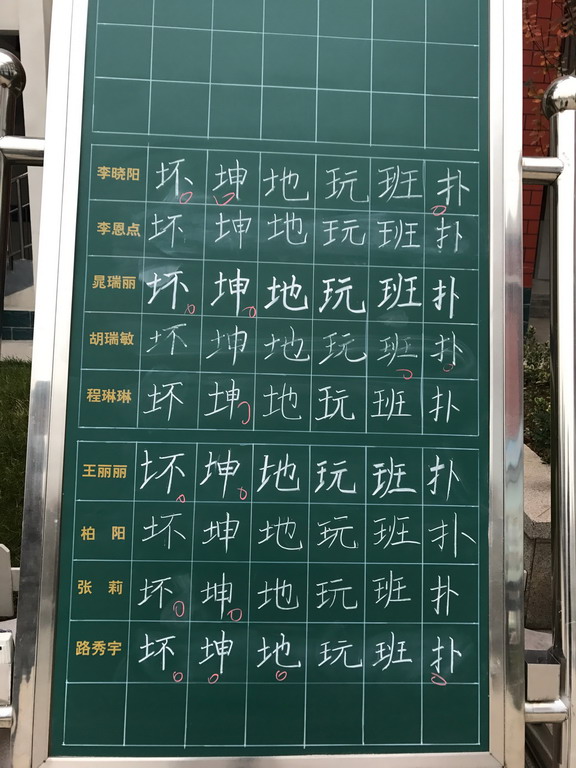 李晓阳 坏 坤 地 玩 班 扑
李恩点 坏 坤 地 玩 班 扑
晁瑞丽 坏 坤 地 玩 班 扑
胡瑞敏 坏 坤 地 玩 班 扑
程琳琳 坏 坤 地 玩 班 扑
王丽丽 坏 坤 地 玩 班 扑
柏 阳 坏 坤 地 玩 班 扑
张 莉 坏 坤 地 玩 班 扑
路秀宇 坏 坤 地 玩 班 扑